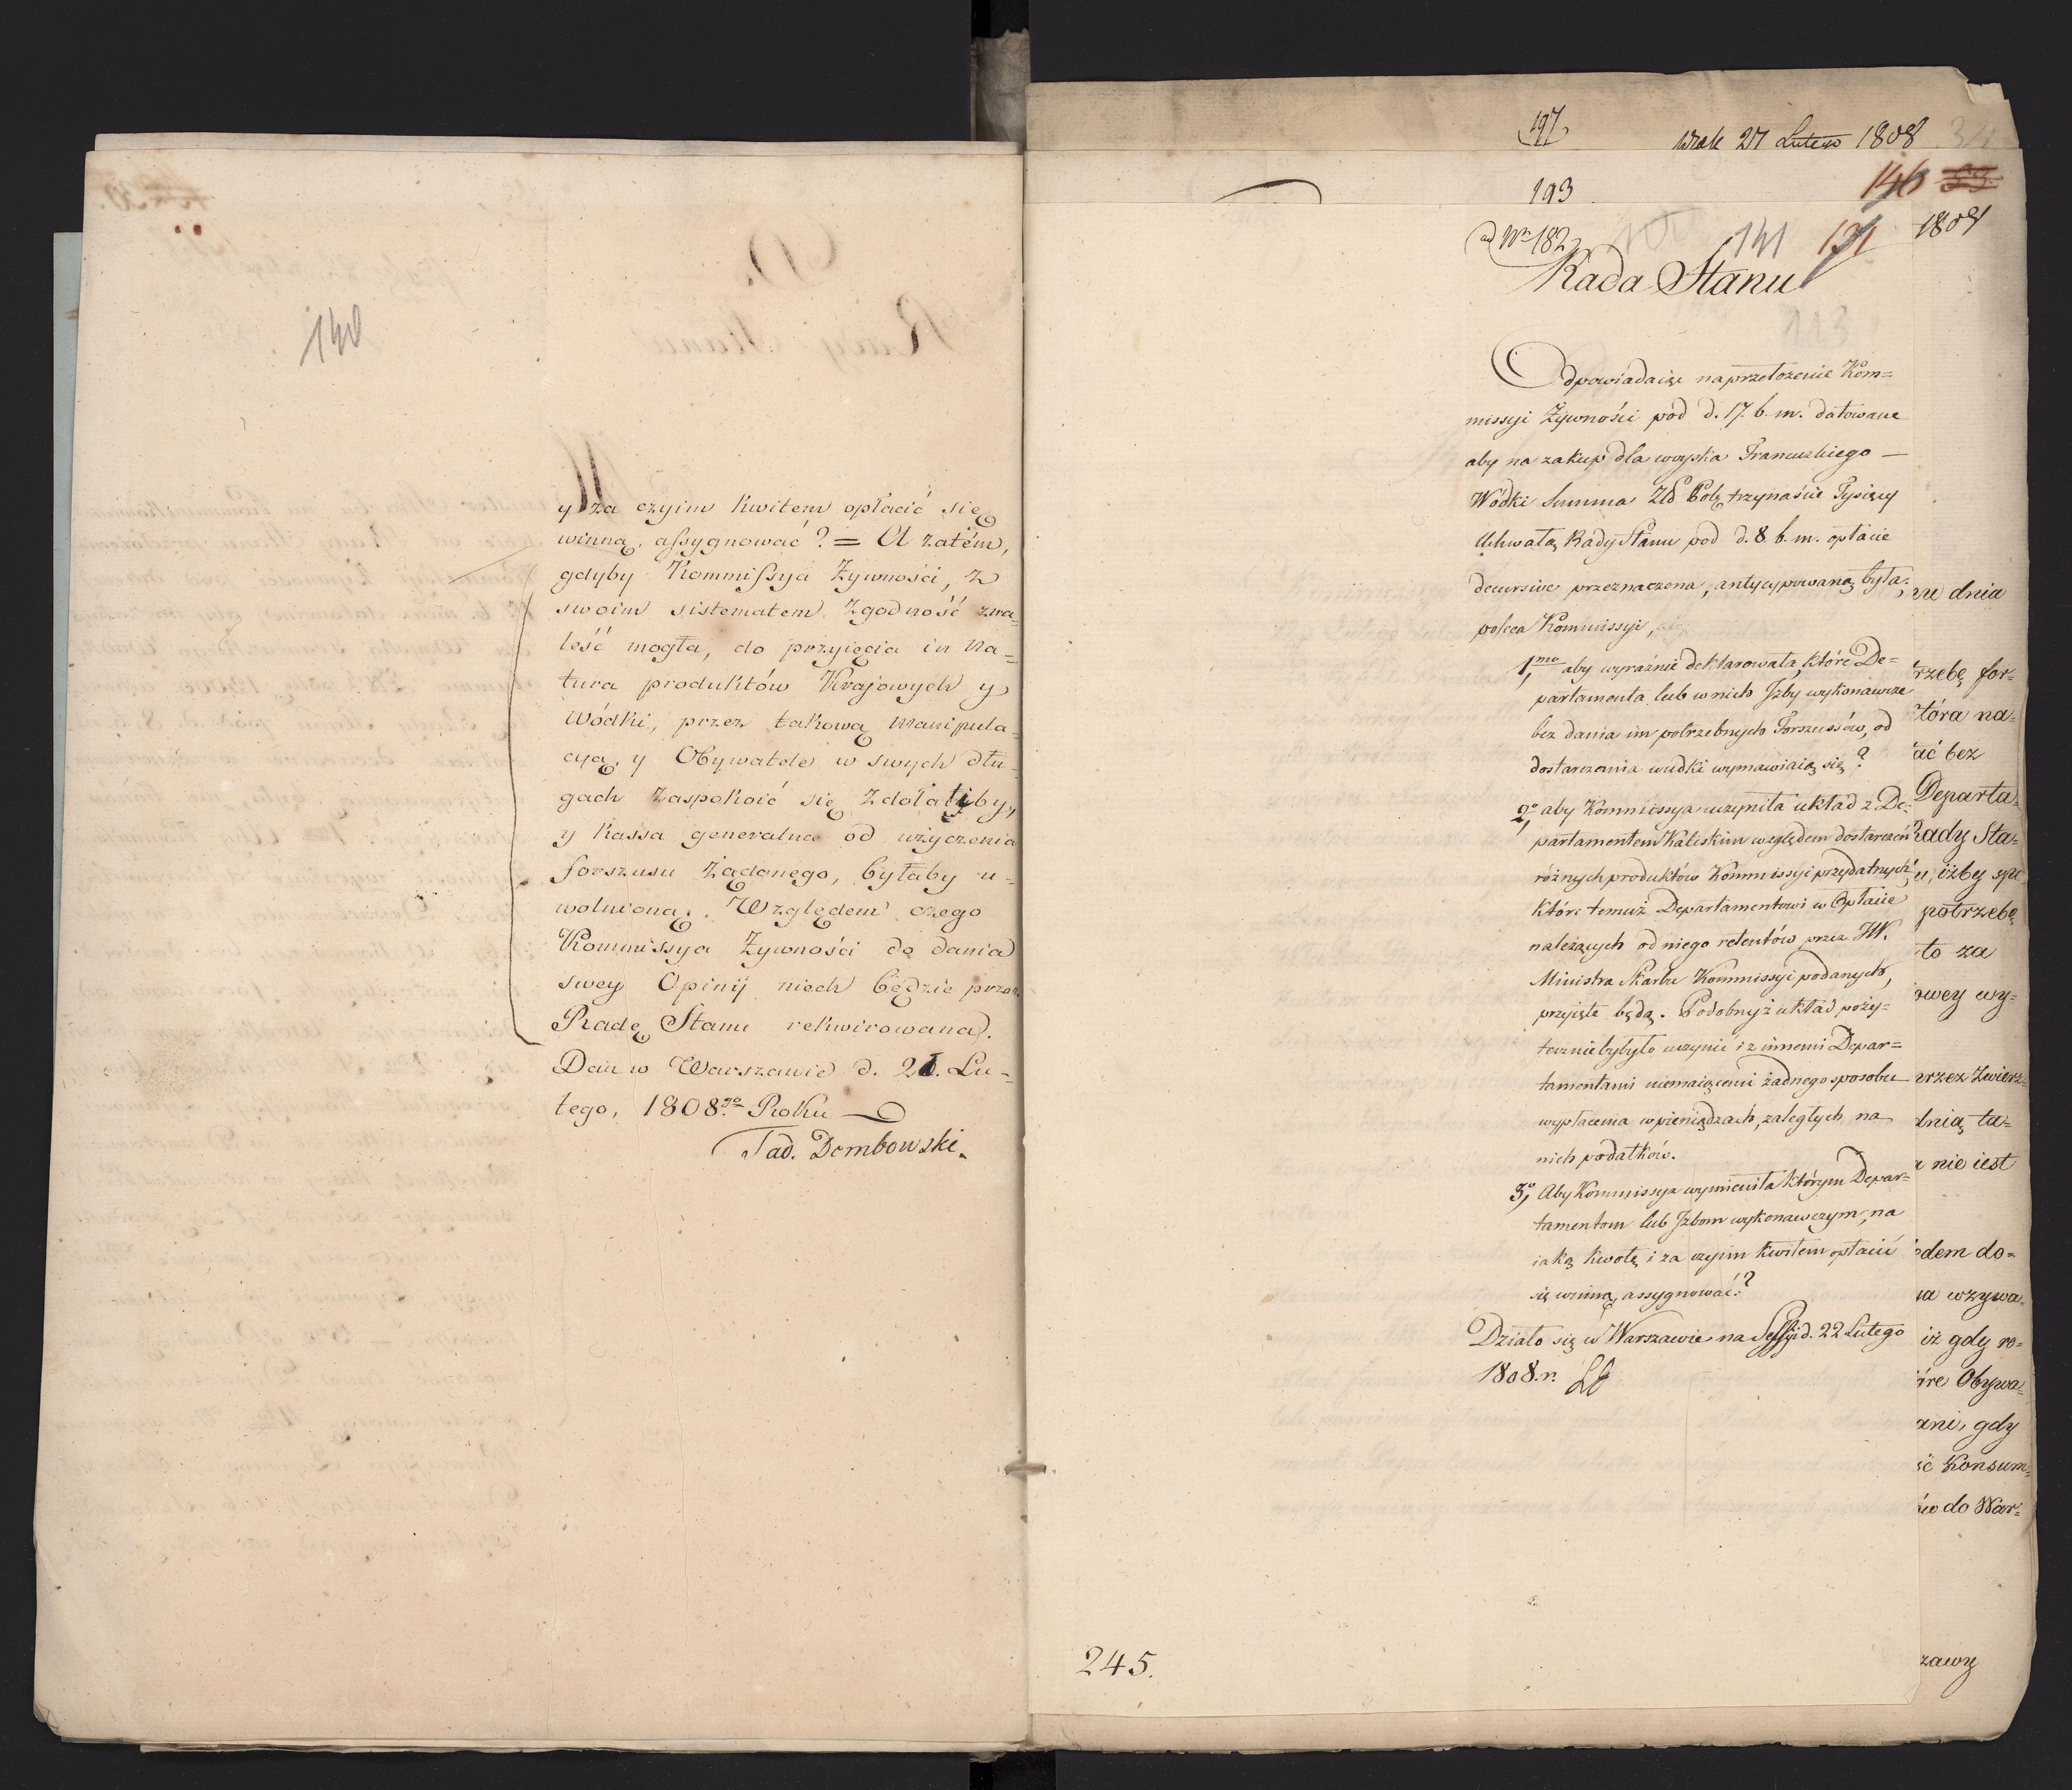 140
y za czyim kwitem opłacić się
winną, assygnować? = A zatém,
gdyby Kommissya Żywności, z
swoim sistematem zgodność zna-
leść mogła, do przyięcia in na=
tura produktów Krajowych y
Wódki, przez takową manipula-
cyą, y Obywatele w swych dłu-
gach zaspokoić się zdołaliby,
y Kassa generalna od użyczenia
forszusu żądanego, byłaby u=
wolnioną. Względem czego
Kommissya Żywności do dania
swey Opinij niech będzie przez
Radę Stanu rekwirowana.
Dan w Warszawie d. 21. Lu-
tego, 1808.go Roku
Tad. Dembowski.
197
27 Lutego 1808
34
193
146
ad Nr 182
141
131
1808
Rada Stanu
113
Odpowiadaiąc na przełożenie Kom=
missyi Żywności pod d. 17. b. m. datowane
aby na zakup dla woyska Francuzkiego —
Wódki Summa Złł Pols. trzynaście Tysięcy
Uchwałą Rady Stanu pod d. 8. b. m. opłacie
decursive przeznaczona, antycypowaną była;
poleca Kommissyi,
1,mo aby wyraźnie deklarowała, które De=
partamenta lub w nich Jzby wykonawcze
bez dania im potrzebnych Forszussów, od
dostarczenia wudki wymawiaią się?
2,o aby Kommissya uczyniła układ z De-
partamentem Kaliskim względem dostarczeń
różnych produktów Kommissyi przydatnych,
które temuż Departamentowi w Opłacie
należących od niego retentów przez JW.
Ministra Skarbu Kommissyi podanych,
przyięte będą. Podobnyż układ poży=
tecznie byłyto uczynić i z innemi Depar=
tamentami niemaiącemi żadnego sposobu
wypłacenia w pieniądzach, zaległych na
nich podatków.
3,o Aby Kommissya wymieniła którym Depar=
tamentom lub Jzbom wykonawczym, na
iaką kwotę i za czyim kwitem opłacić
się winną, assygnować?
Działo się w Warszawie na Sessyi d. 22 Lutego
1808. r.
245.
dnia
trzebę for=
tóra na=
ać bez
Departa-
Rady Sta=
u, iżby spe
potrzebę
to za
owey wy=
przez Zwierz=
dnią ta=
nie iest
dem do=
wzywa-
iż gdy ro=
óre Obywa=
ani, gdy
ść Konsum=
ów do War=
zawy